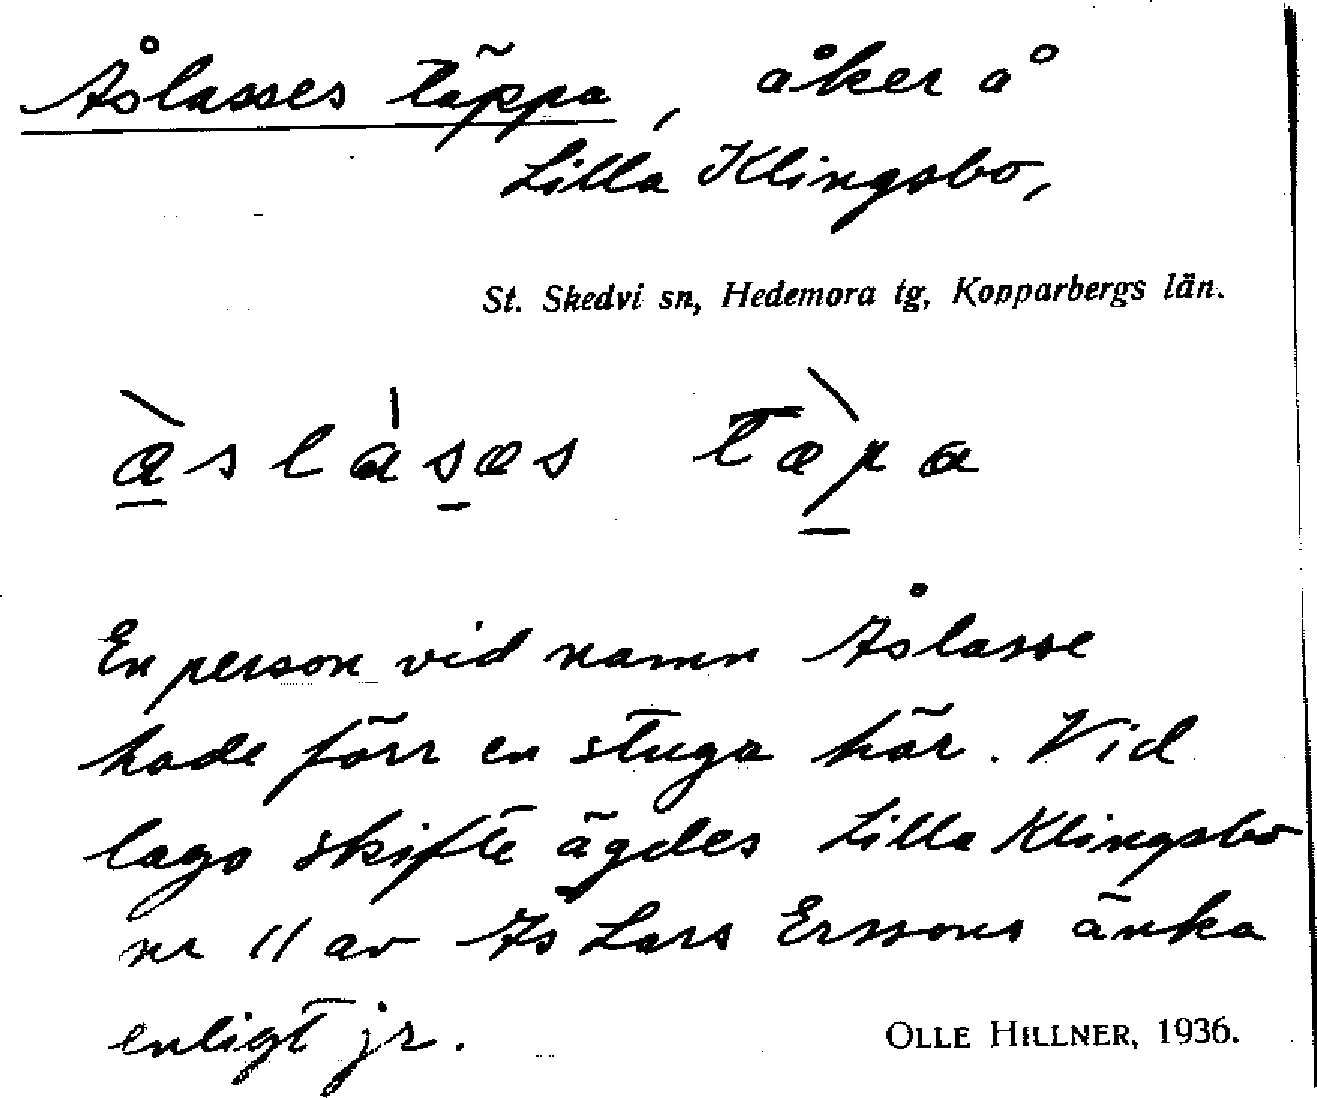 Åslasses täppa, åker å
Lilla Klingsbo,
St. Skedvi sn, Hedemora tg, Kopparbergs län.
En person vid namn Åslasse
hade förr en stuga här. Vid
laga skifte ägdes Lilla Klingsbo
nr 11 av Ås Lars Erssons änka
enligt jr.
OLLE HILLNER, 1936.